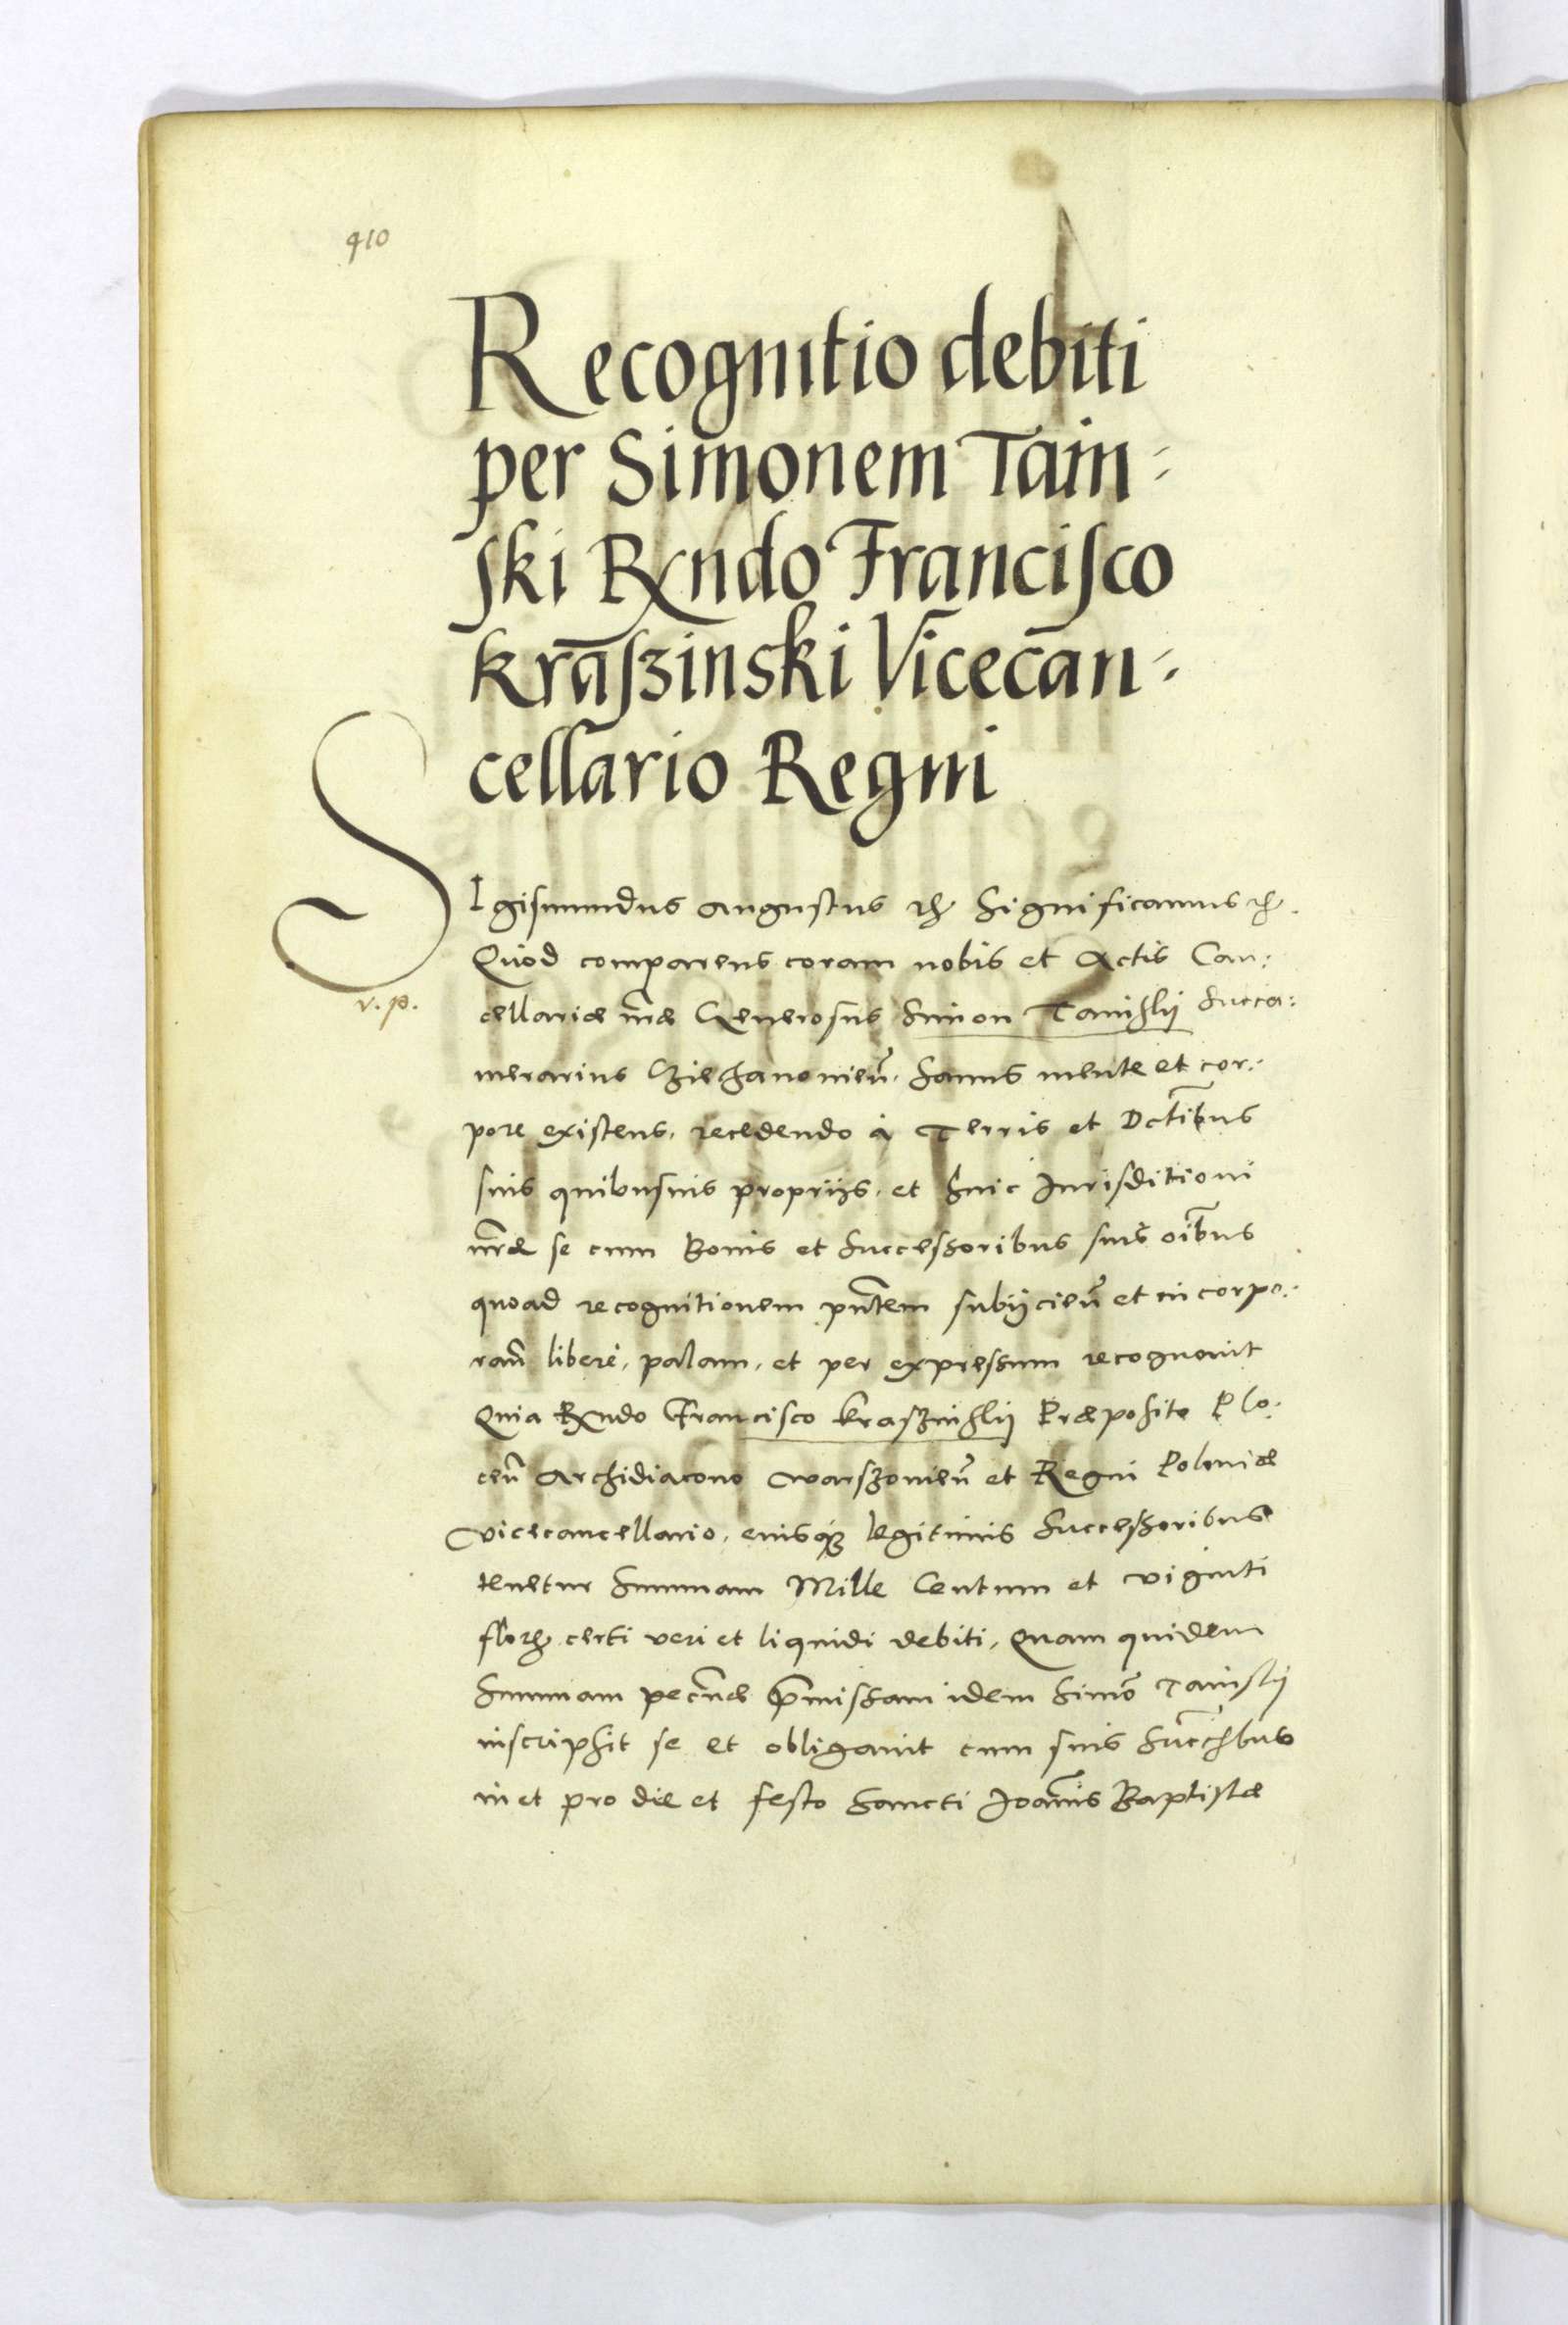 410
Recognitio debiti
per Simonem Tain-
ski Rndo Francisco
kraszinski Vicecan-
cellario Regni
SIgismundus Augustus etc. Significamus etc.
Quod comparens coram nobis et Actis Can:
v. p.
cellariæ nræ Generosus Simon Tainskij Succa:
merarius Cziechanovien. sanus mente et cor:
pore existens, recedendo à Terris et Dctibus
suis quibusuis proprijs, et huic Jurisditioni
nræ se cum Bonis et Successoribus suis oibus
quoad recognitionem pntem subijcien et incorpo:
ran liberè, palam, et per expressum recognouit
Quia Rndo Francisco kraszinskij Præposito Plo:
cen Archidiacono Warszouien et Regni Poloniæ
Vicecancellario, eiusque legitimis Successoribus
tenetur Summam Mille Centum et viginti
flor. certi veri et liquidi debiti, Quam quidem
Summam pecnæ pmissam idem Simo Tainskij
inscripsit se et obligauit cum suis Succribus
in et pro die et festo Sancti Joannis Baptistæ